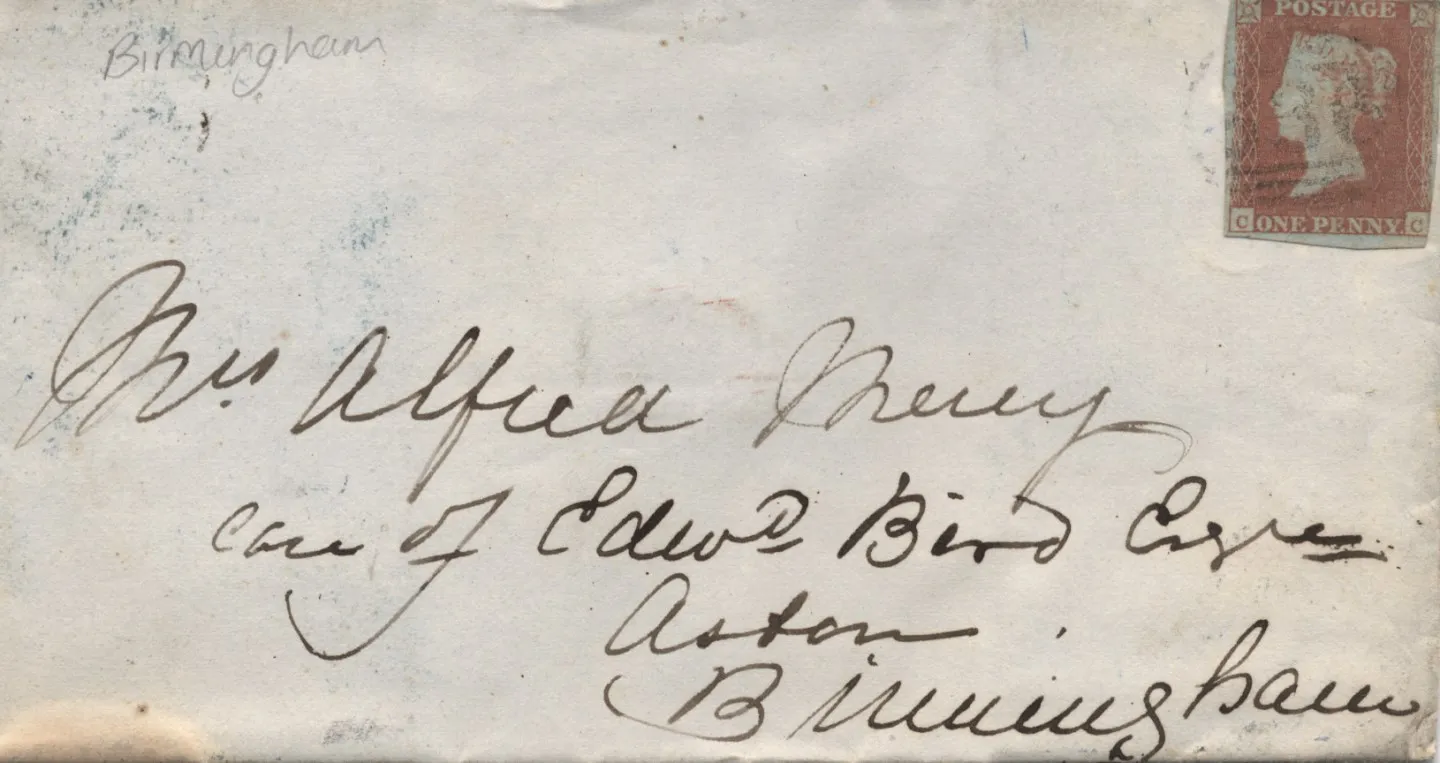 Birmingham
POSTAGE
C ONE PENNY. C
Mrs. Alfred Merry
care of Edwd Bird Esqre
Aston
Birmingham